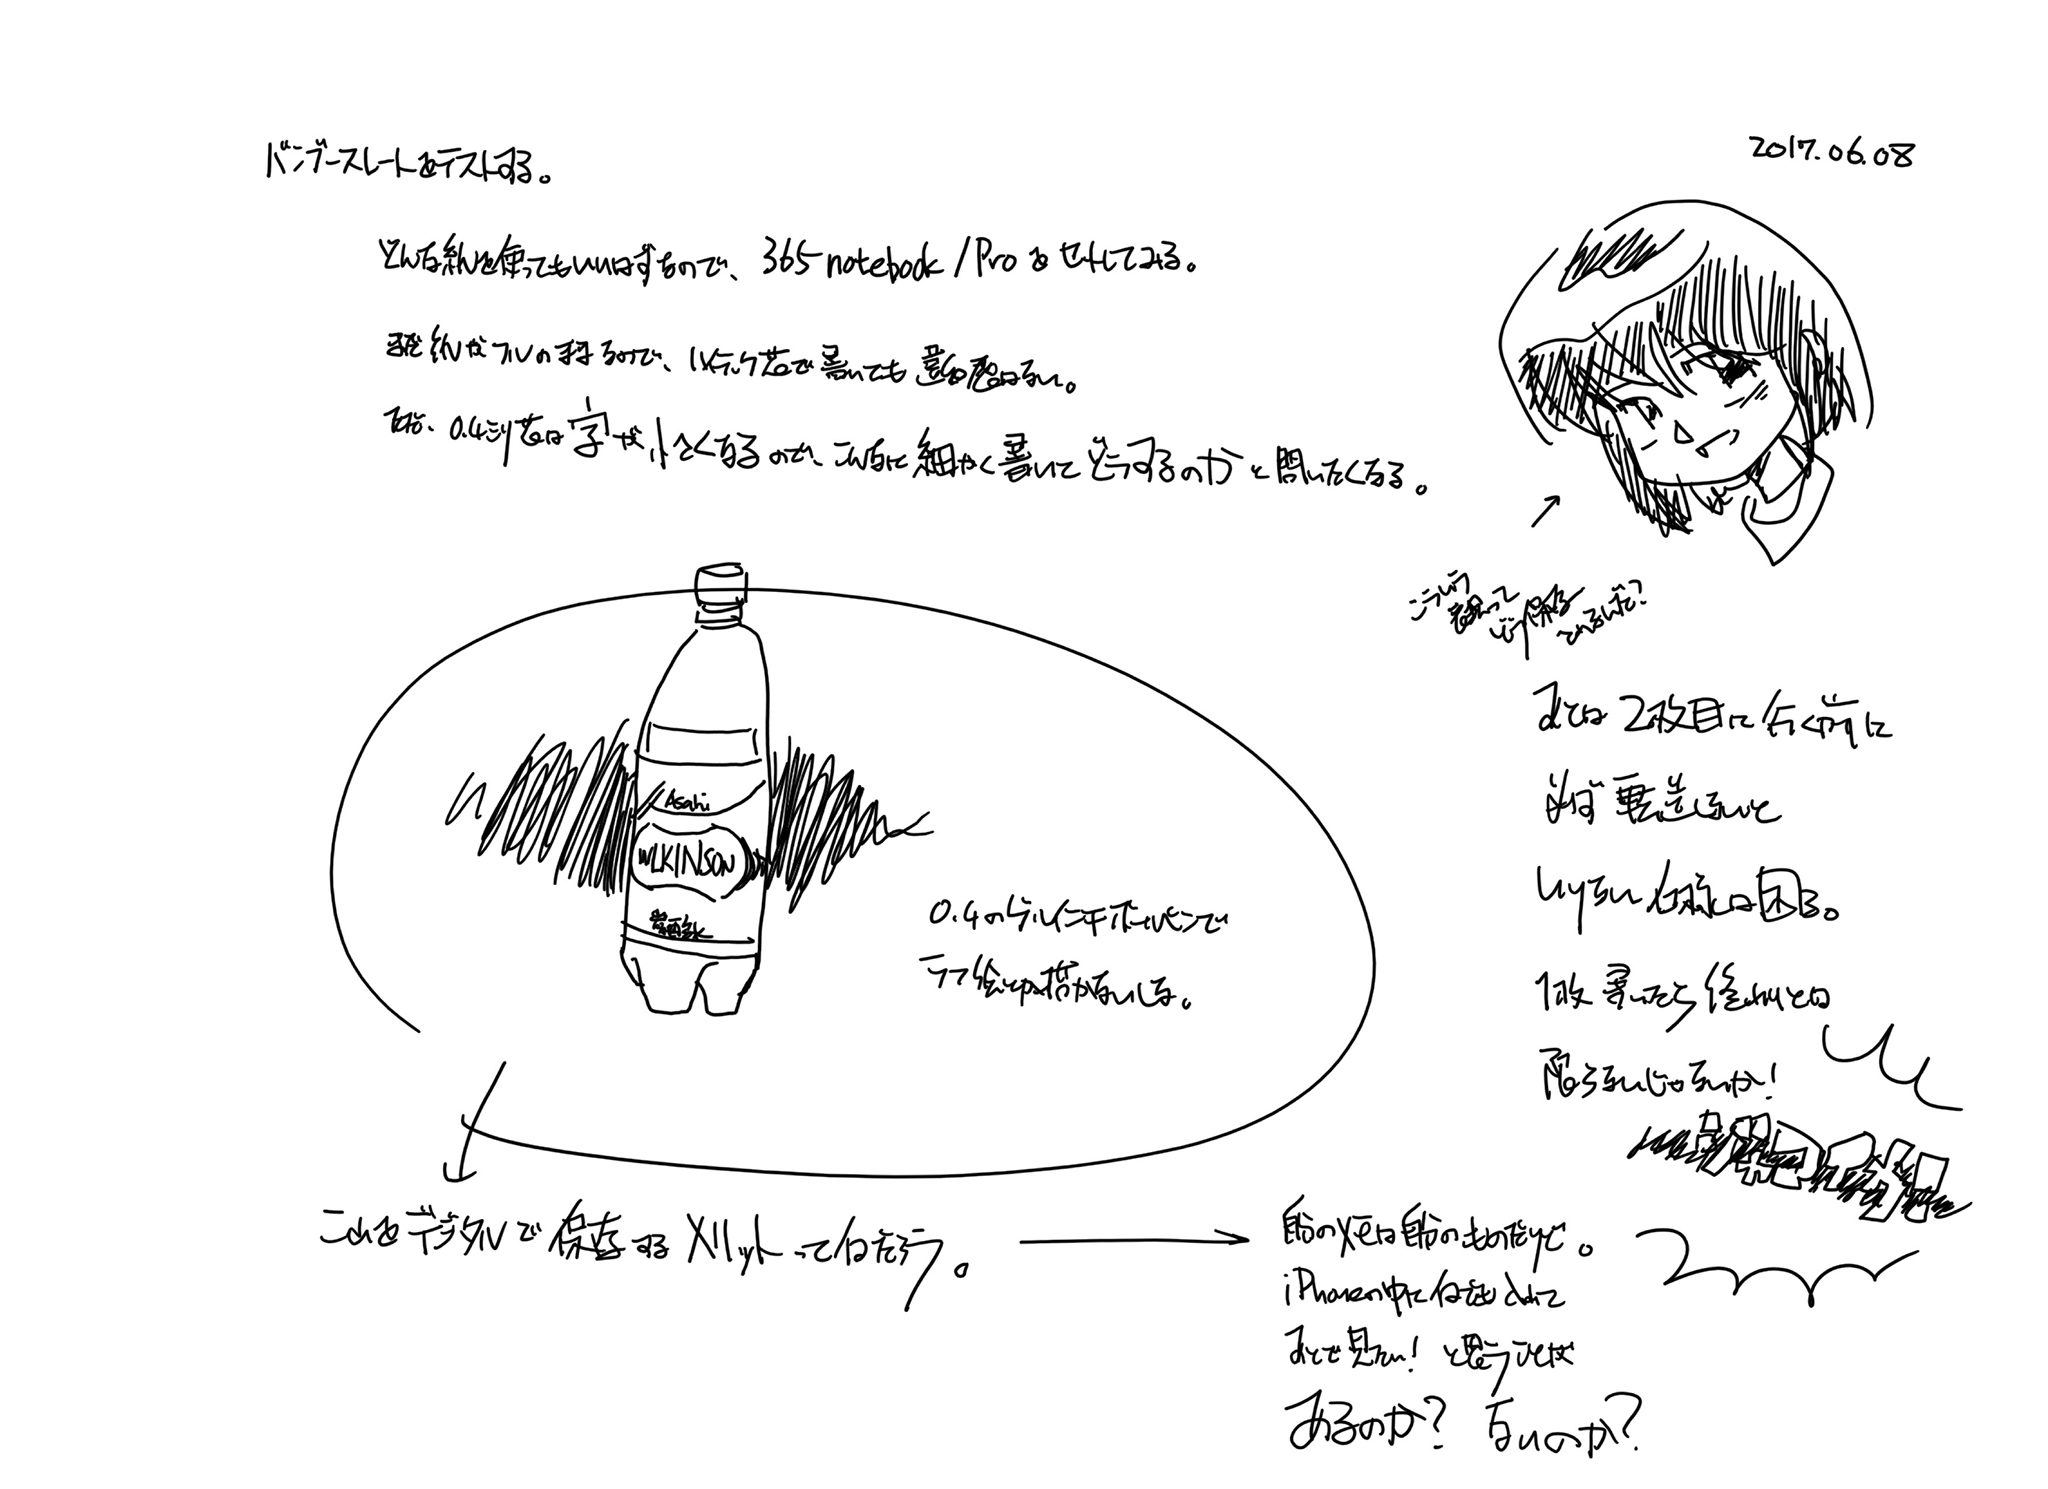 バンブースレートをテストする。
2017.06.08
どんな紙を使ってもいいはずなので、365 notebook / Pro をセットしてみる。
まだ紙が で書いても はない。
0.4ミリ芯は字が小さくなるので、こんなに細かく書いてどうするのかと問いたくなる。
こういう
って
どう保存
されるんだ?
Asahi
WLKINSON
炭酸水
0.4のゲルインキボールペンで
ラフ絵とか描かないしな。
2枚目に行く前に
必ず転送しないと
いけない仕様は困る。
1枚書いたら終わりとは
限らないじゃないか!
これをデジタルで保存するメリットって何だろう。
自分のメモは自分のものだけど。
iPhoneの中に何でも入れて
あとで見たい! と思うことが
あるのか? ないのか?